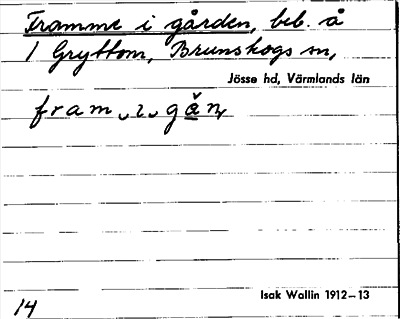 Framme i gården, beb. å
1 Gryttom, Brunskogs sn,
Jösse hd, Värmlands län
Isak Wallin 1912–13
14